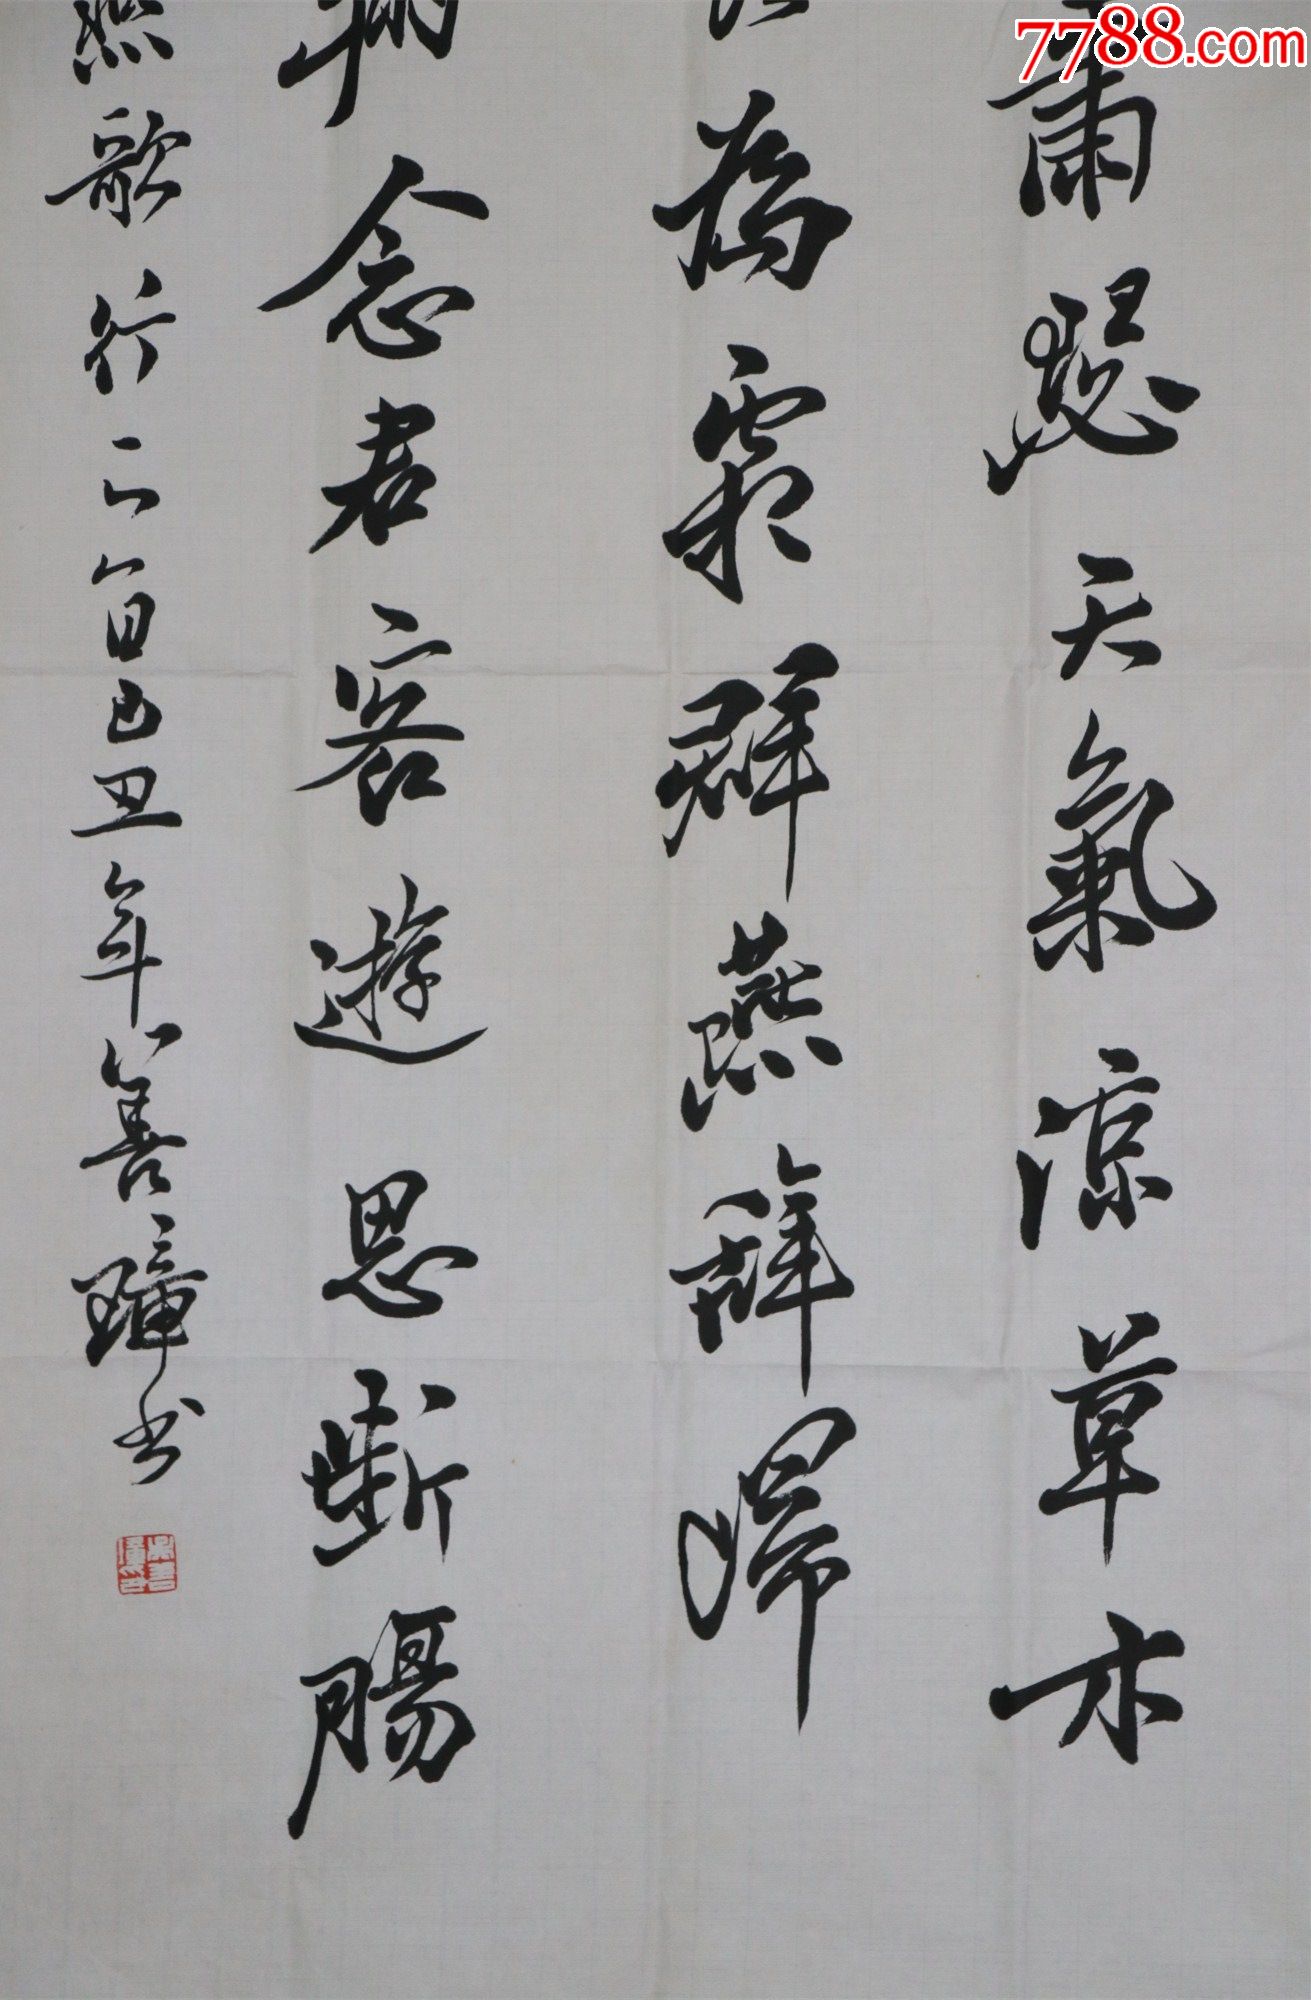 7788.com
蕭瑟天氣涼草木
為霜群燕辭歸
翔念君客遊思斷腸
燕歌行二首己丑年善璋书